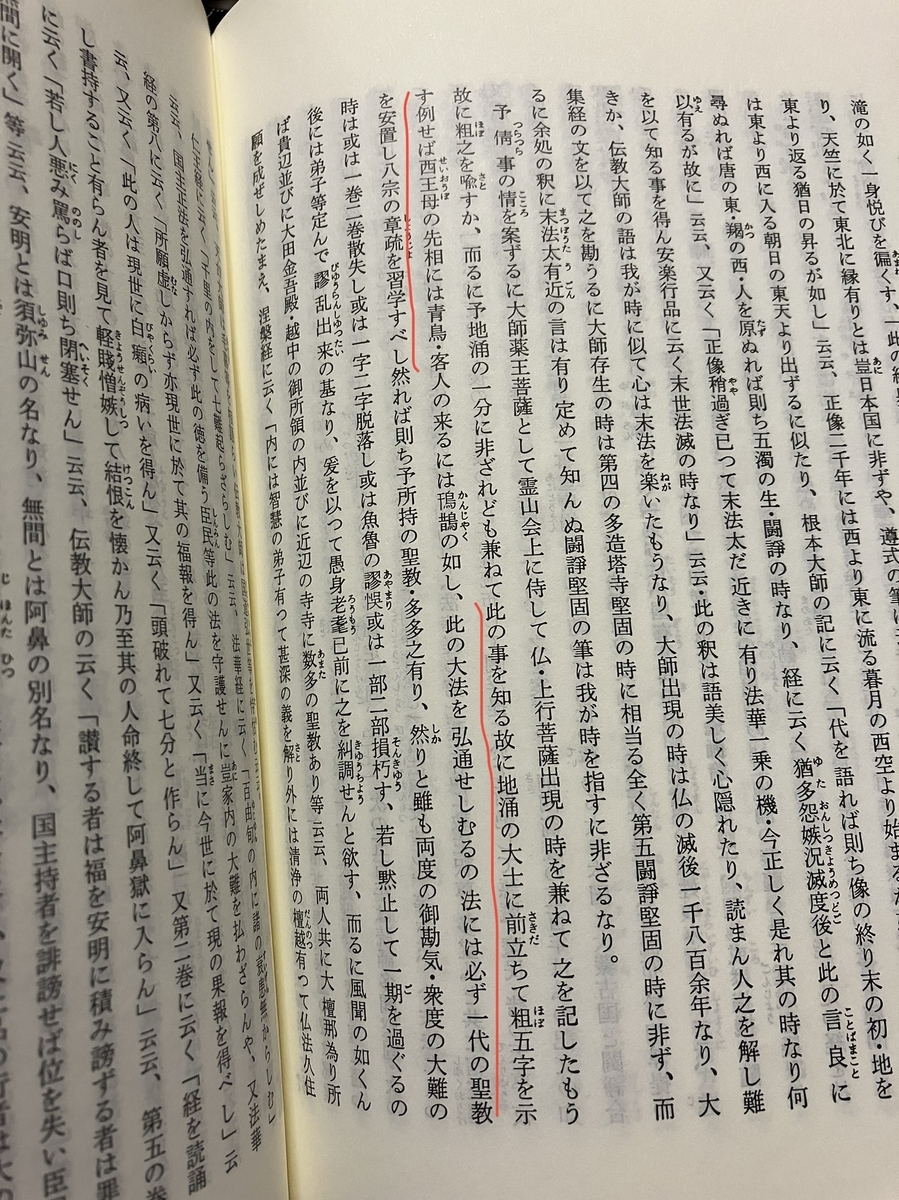 滝の如く一身悦びを徧くす、「此の経
り、天竺に於て東北に縁有りとは豈日本国に非ずや、遵式の筆に
東より返る猶日の昇るが如し」云云、正像二千年には西より東に流る暮月の西空より始まるが
は東より西に入る朝日の東天より出ずるに似たり、根本大師の記に云く「代を語れば則ち像の終り末の初・地を
尋ぬれば唐の東・羯の西・人を原ぬれば則ち五濁の生・闘諍の時なり、経に云く猶多怨嫉況滅度後と此の言良に
以有るが故に」云云、又云く「正像稍過ぎ已つて末法太だ近きに有り法華一乗の機・今正しく是れ其の時なり何
を以て知る事を得ん安楽行品に云く末世法滅の時なり」云云・此の釈は語美しく心隠れたり、読まん人之を解し難
きか、伝教大師の語は我が時に似て心は末法を楽いたもうなり、大師出現の時は仏の滅後一千八百余年なり、大
集経の文を以て之を勘うるに大師存生の時は第四の多造塔寺堅固の時に相当る全く第五闘諍堅固の時に非ず、而
るに余処の釈に末法太有近の言は有り定めて知んぬ闘諍堅固の筆は我が時を指すに非ざるなり。
予倩事の情を案ずるに大師薬王菩薩として霊山会上に侍して仏・上行菩薩出現の時を兼ねて之を記したもう
故に粗之を喩すか、而るに予地涌の一分に非ざれども兼ねて此の事を知る故に地涌の大士に前立ちて粗五字を示
す例せば西王母の先相には青鳥・客人の来るには鳱鵲の如し、此の大法を弘通せしむるの法には必ず一代の聖教
を安置し八宗の章疏を習学すべし然れば則ち予所持の聖教・多多之有り、然りと雖も両度の御勘気・衆度の大難の
時は或は一巻二巻散失し或は一字二字脱落し或は魚魯の謬悞或は一部二部損朽す、若し黙止して一期を過ぐるの
後には弟子等定んで謬乱出来の基なり、爰を以つて愚身老耄已前に之を糾調せんと欲す、而るに風聞の如くん
ば貴辺並びに大田金吾殿・越中の御所領の内並びに近辺の寺寺に数多の聖教あり等云云、両人共に大檀那為り所
願を成ぜしめたまえ、涅槃経に云く「内には智慧の弟子有つて甚深の義を解り外には清浄の檀越有つて仏法久住
仁王経に云く「千里の内をして七難起らざらしむ」云云、法華経に云く「百由旬の内に諸の衰患無からしむ」
云云、国主正法を弘通すれば必ず此の徳を備う臣民等此の法を守護せんに豈家内の大難を払わざらんや、又法華
経の第八に云く「所願虚しからず亦現世に於て其の福報を得ん」又云く「当に今世に於て現の果報を得べし」云
云、又云く「此の人は現世に白癩の病いを得ん」又云く「頭破れて七分と作らん」又第二巻に云く「経を読誦
し書持すること有らん者を見て軽賤憎嫉して結恨を懐かん乃至其の人命終して阿鼻獄に入らん」云云、第五の巻
に云く「若し人悪み罵らば口則ち閉塞せん」云云、伝教大師の云く「讃する者は福を安明に積み謗ずる者は罪
無間に開く」等云云、安明とは須弥山の名なり、無間とは阿鼻の別名なり、国主持者を誹謗せば位を失い臣